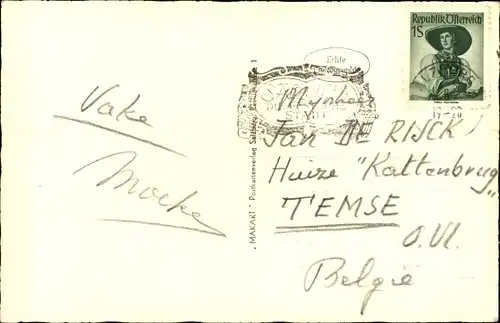 Vake
Mocke
"MAKART" Postkartenverlag Salzburg
Echte
Republik Österreich
1S
Mynheer
Jan DE RIJCK
Huize "Kattenbrug"
TEMSE
O.Vl.
Belgie